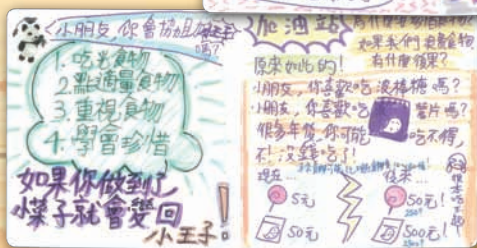 小朋友,你會協姐姐
嗎?
1. 吃光食物
2. 點適量食物
3. 重視食物
4. 學會珍惜
如果你做到了
小菜子就會變回
小王子。
加油站
如果我們浪費食物
有什麼後果?
原來如此的!
小朋友,你喜歡吃波棒糖嗎?
小朋友,你喜歡吃薯片嗎?
很多年後,你可能吃不得,
不!沒錢吃了!
現在...
後來...
5元
50元!
50元
500元!
根本吃不起!